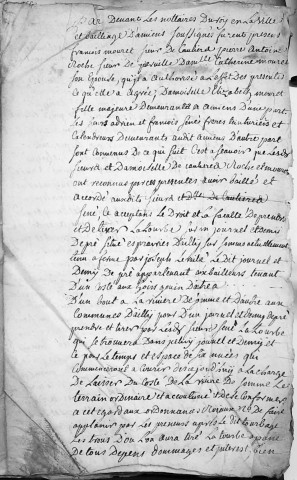 Par Devant Les nottaires Du Roy en La Ville
et bailliage Damiens soussignés furent presens
francois mouret sieur De Caubert pierre Antoine
Roche sieur De Damelle Catherine mouret
son Epouse, qu'il a authorisé an effet Des presentes
ce qu'elle a agréé, Damoiselle Elizabeth mouret
fille majeure Demeurants a Amiens D'une part
Les sieurs adrien et francois sené freres teinturiers et
Calendreurs Demeurants audit amiens D'autre part
sont Convenus De ce qui suit C'est a sçavoir que Lesdits
sieurs et Damoiselle De Caubert Roche et mouret
ont reconnus par ces presentes avoir baillé et
accordé auxdits sieurs
sené, Ce acceptans Le Droit et La faculté De prendre
et De tirer La tourbe sur un journel et Demi
De pré situé es prairies D'ailly sur somme actuellement
tenu a ferme par joseph Le dit journel et
Demy De pré appartenant aux bailleurs tenant
D'un Coste aux hoirs D'autre a
D'un bout a La riviere De somme et D'autre aux
Communes D'ailly pour D'un journel et Demy De pré
prendre et tirer par Lesdits sieurs sené La tourbe
qui se trouvera Dans journel et Demy et
ce pour Le temps et Espace De six années qui
commenceront a courir De ce jourd'huy a La charge
De Laisser Du Costé De La riviere De somme Le
terrain ordinaire et accoutumé et De se Conformer
a cet egard aux ordonnances De faire
applanir par Les preneurs après Le tourbage
Les trous D'ou L'on aura tiré La tourbe a peine
De tous Depens Dommages et interest, bien